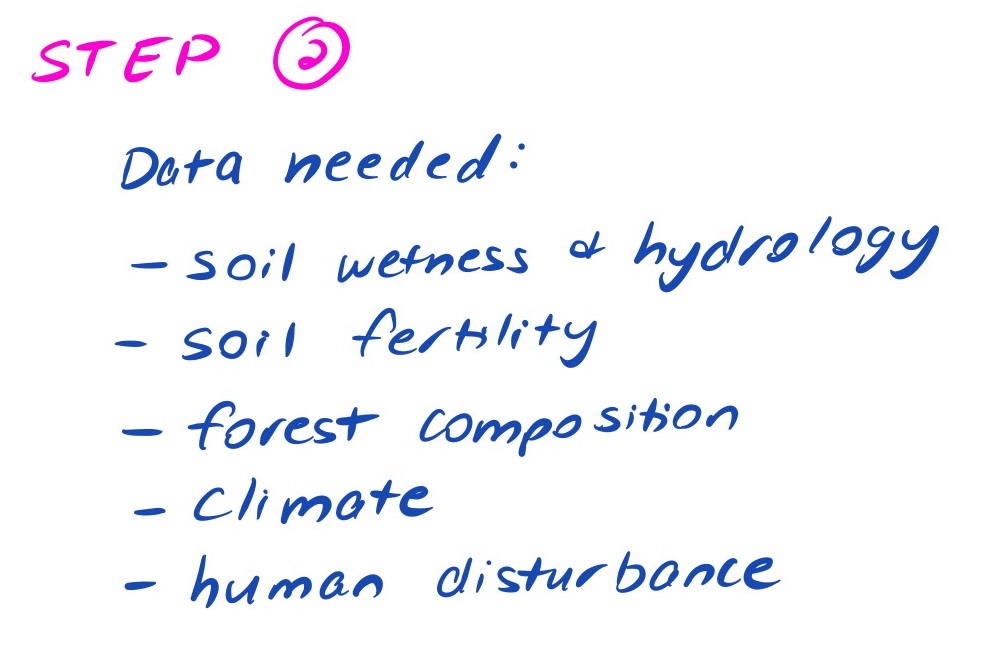 STEP 2
Data needed:
- soil wetness & hydrology
- soil fertility
- forest composition
- Climate
- human disturbance